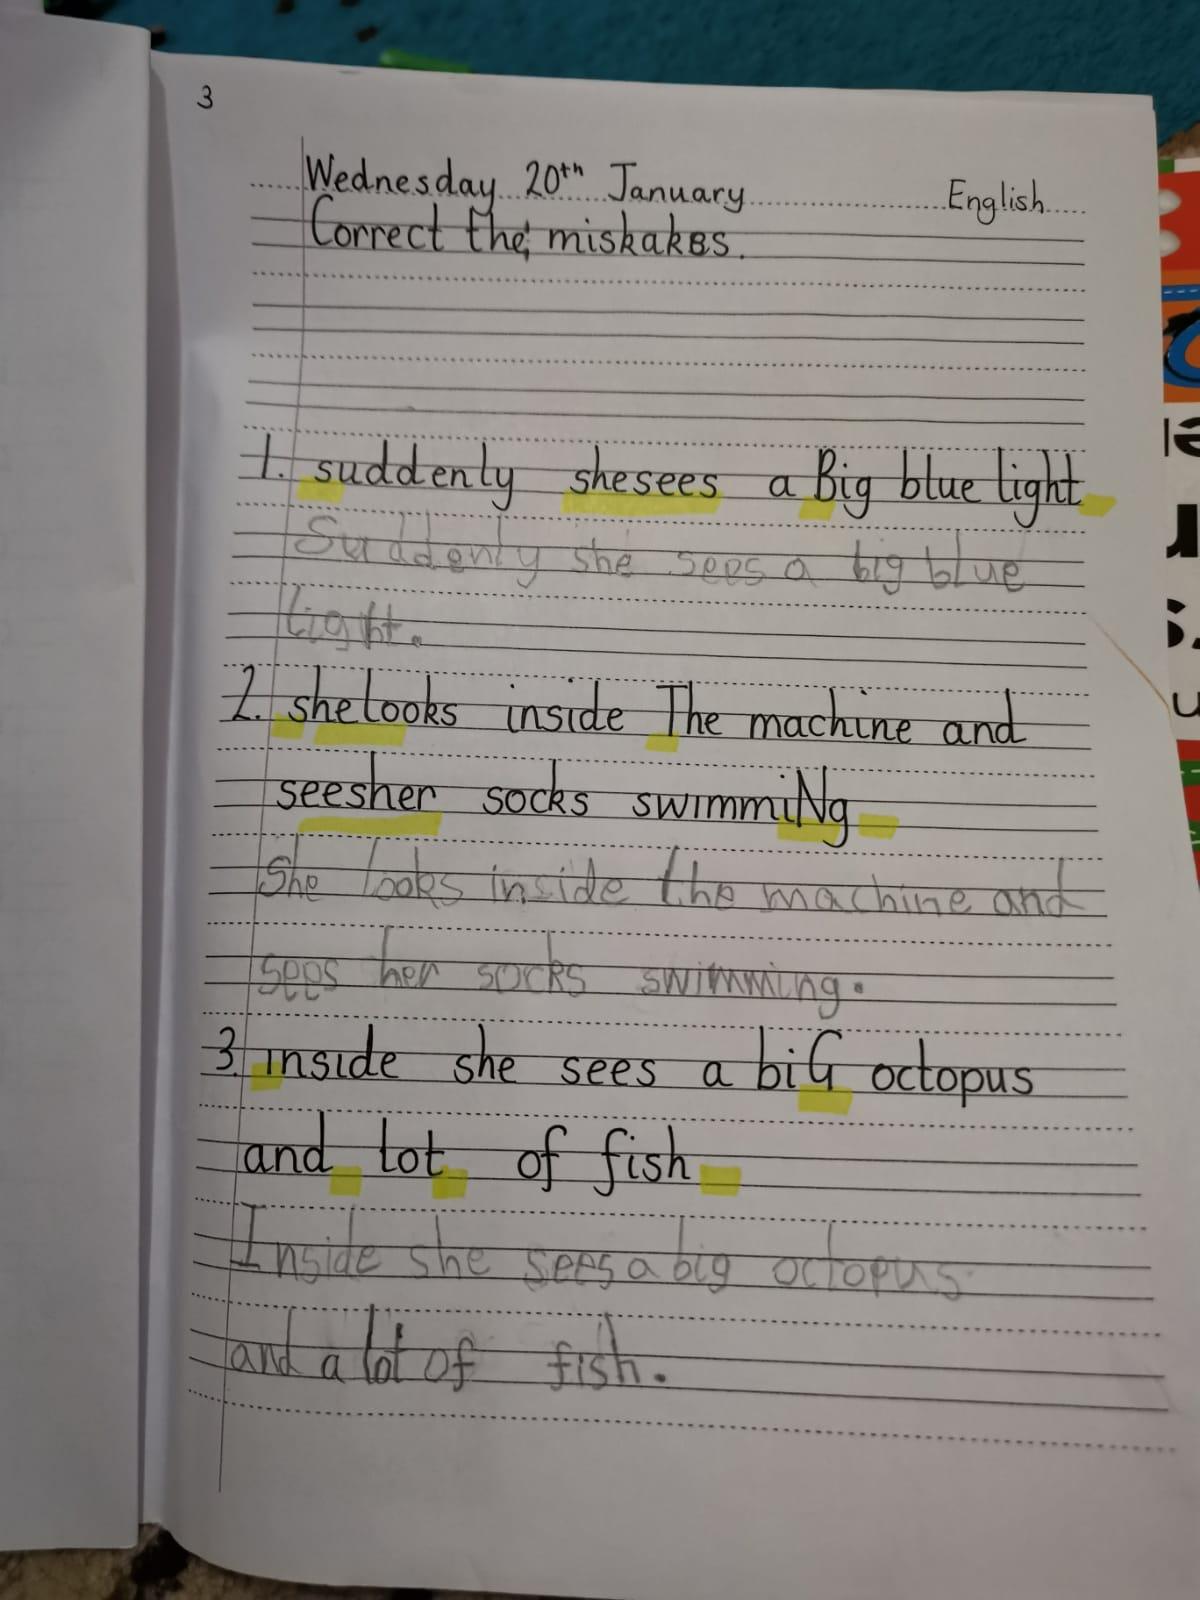 3
Wednesday 20th January English
Correct the miskakes.
1. suddenly shesees a Big blue light
Suddenly she sees a big blue
light.
2. shelooks inside The machine and
seesher socks swimmiNg
She looks inside the machine and
sees her socks swimming.
3. inside she sees a biG octopus
and lot of fish
Inside she sees a big octopus
and a lot of fish.